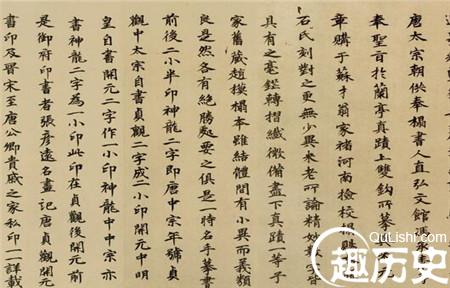 唐太宗朝供奉榻書人直弘文館馮承素等
奉聖旨於蘭亭真蹟上雙鉤所摹
章購于蘇才翁家褚河南檢校
石氏刻對之更無少異米老所論精妙數字皆
具有之毫鋩轉摺纖微備盡下真蹟一等予
家舊藏趙模榻本雖結體間有小異而義類
良是然各有絕勝處要之俱是一時名手摹書
前後二小半印神龍二字即唐中宗年號貞
觀中太宗自書貞觀二字成二小印開元中明
皇自書開元二字作一小印神龍中中宗亦
書神龍二字為一小印此印在貞觀後開元前
是御府印書者張彥遠名畫記唐貞觀開元
書印及晉宋至唐公卿貴戚之家私印一一詳載
QuLiShi.com
趣历史